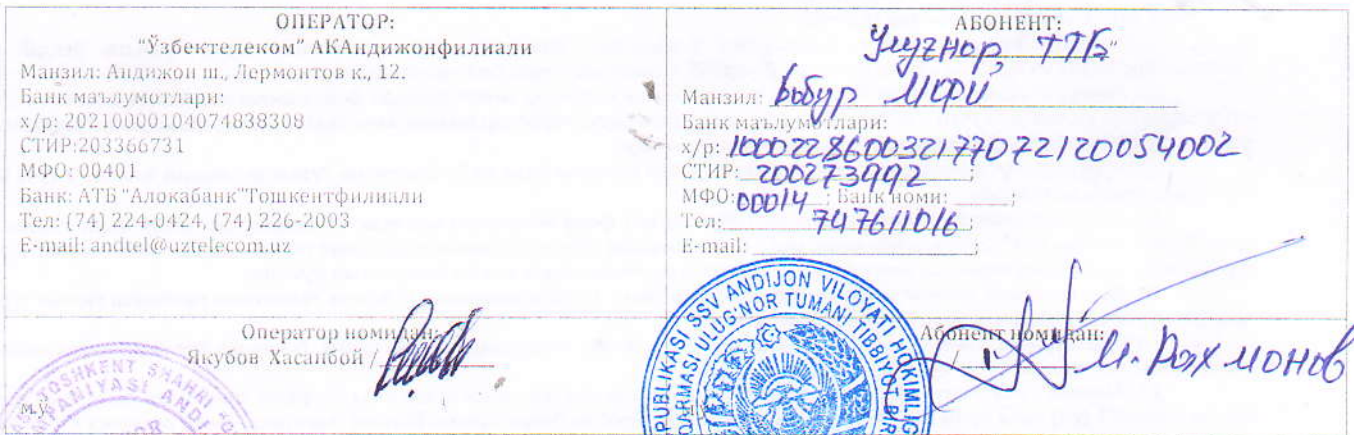 ОПЕРАТОР:
"Ўзбектелеком" АКАндижонфилиали
Манзил: Андижон ш., Лермонтов к., 12.
Банк маълумотлари:
х/р: 20210000104074838308
СТИР:203366731
МФО: 00401
Банк: АТБ "Алокабанк"Тошкентфилиали
Тел: (74) 224-0424, (74) 226-2003
E-mail: andtel@uztelecom.uz
Оператор номидан:
Якубов Хасанбой /
м.ў.
TOSHKENT SHAHRI
ANDI
АБОНЕНТ:
Улуғнор, ТТБ"
Манзил: Бобур МФЙ
Банк маълумотлари:
х/р: 100022860032177072120054002
СТИР: 200273992;
МФО: 00014; Банк номи: ;
Тел: 747611016;
E-mail: ;
Абонент номидан:
/ М. Рахмонов
SSV ANDIJON VILOYATI HOKIMLIG
ULUG'NOR TUMANI TIBBIYOT BIR